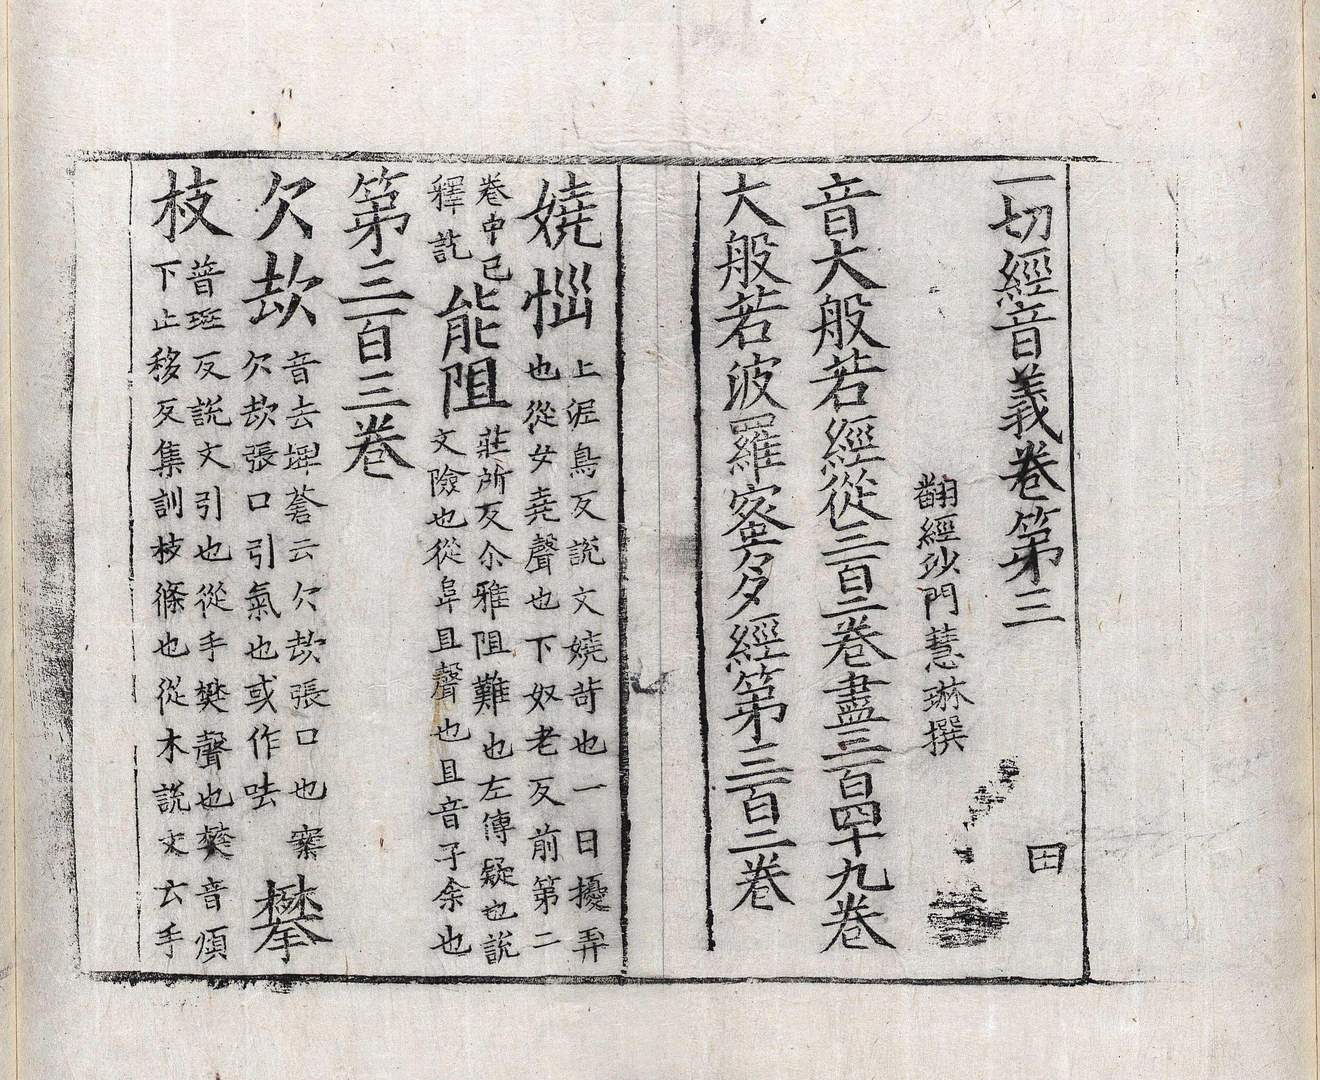 一切經音義卷第三 田
翻經沙門慧琳撰
音大般若經從三百二卷盡三百四十九卷
大般若波羅蜜多經第三百二卷
嬈惱 上泥鳥反說文嬈苛也一曰擾弄
也從女堯聲也下奴老反前第二
卷中已
釋訖 能阻 莊所反尒雅阻難也左傳疑也說
文險也從阜且聲也且音子余也
第三百三卷
欠㰦 音去埤蒼云欠㰦張口也案
欠㰦張口引氣也或作呿 攀
枝 普班反說文引也從手樊聲也樊音煩
下止移反集訓枝條也從木說文云手